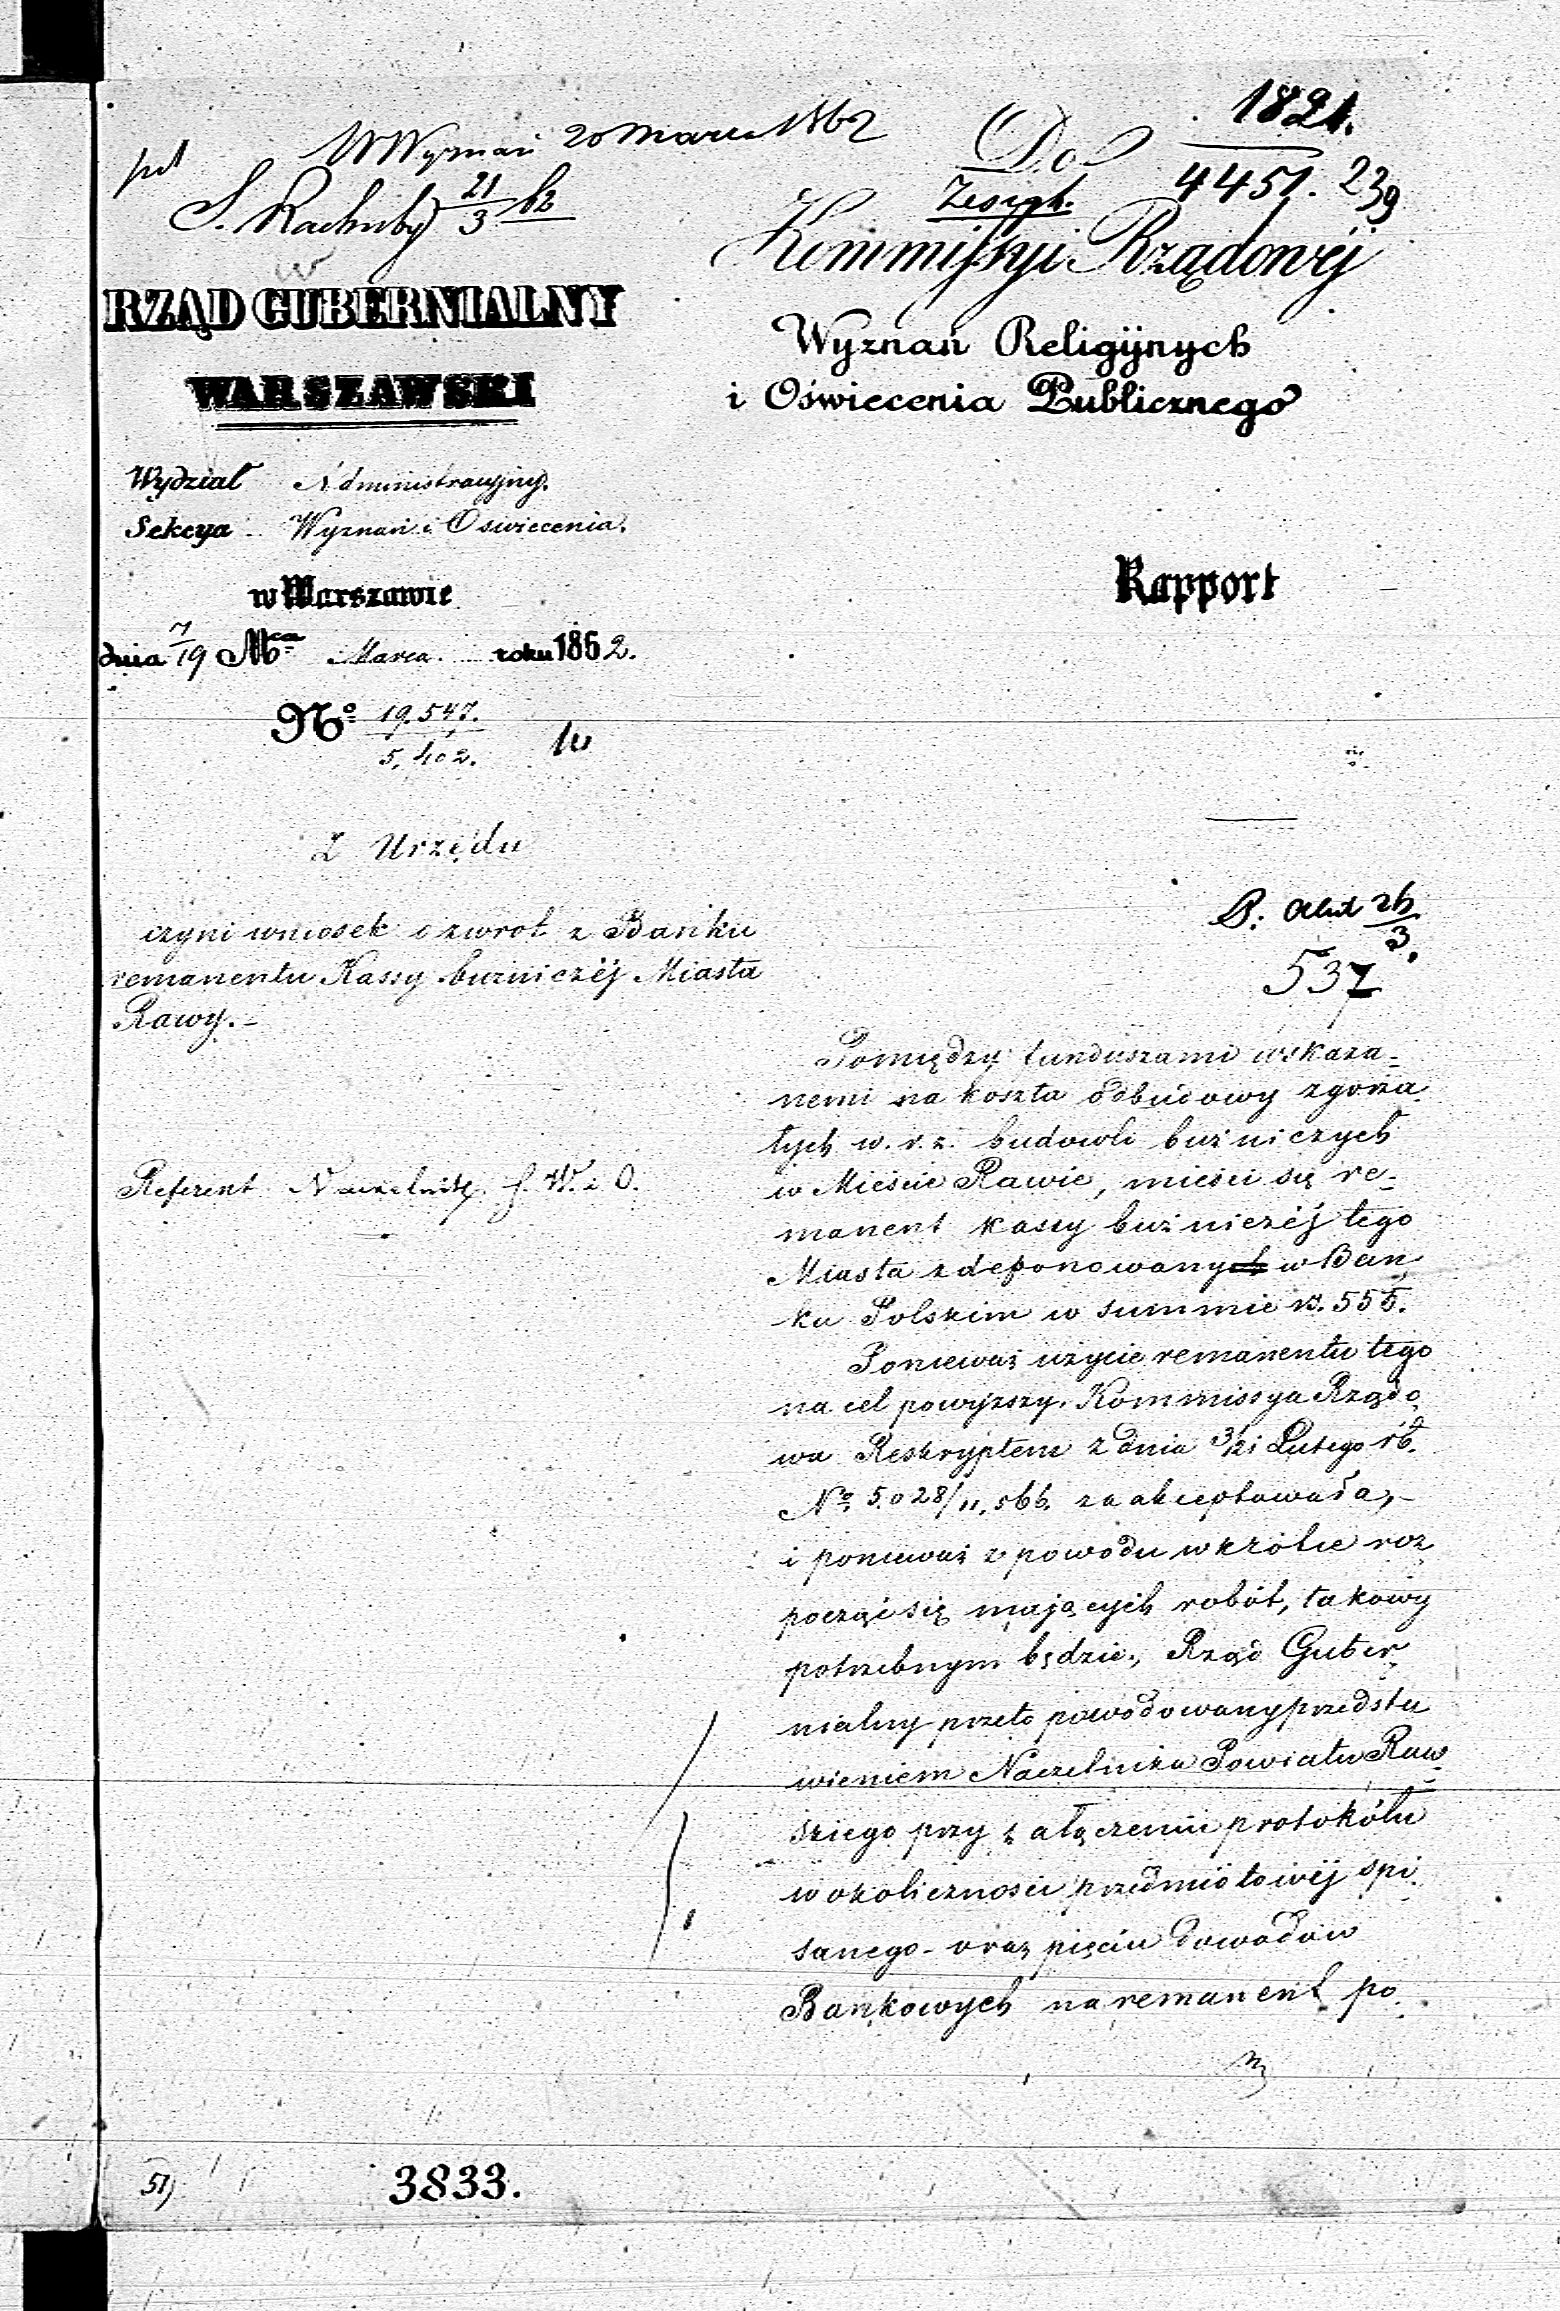 W Wyznań 20 Marca 1862
S. Rachuby 21/3 62
RZĄD GUBERNIALNY
WARSZAWSKI
Wydział Administracyjny.
Sekcya Wyznań i Oswiecenia.
w Warszawie
dnia 7/19 Mca Marca roku 1862.
No 19.547.
5,402.
Z Urzędu
czyni wniosek o zwrot z Banku
remanentu Kassy buzniczéj Miasta
Rawy.-
Referent Naczelnik S. W. i O.
1821.
Do 4451. 239
Kommissyi Rządowéj
Wyznań Religijnych
i Oświecenia Publicznego
Rapport
26/3
537
Pomiędzy funduszami wskaza-
nemi na koszta odbudowy zgorza-
łych w. r. z. budowli buźniczych
w Mieście Rawie, mieści się re-
manent kassy buźniczéj tego
Miasta zdeponowany w Ban-
ku Polskim w summie rs. 555.
Ponieważ użycie remanentu tego
na cel powyższy. Kommissya Rządo-
wa Reskryptem z dnia 3/21 Lutego rb.
No. 5.028/11.566. zaakceptowała,-
i ponieważ z powodu wkrótce roz-
począć się mających robót, takowy
potrzebnym będzie, Rząd Guber-
nialny przeto powodowany przedsta-
wieniem Naczelnika Powiatu Raw-
skiego przy załączeniu protokółu
w okoliczności przedmiotowéj spi-
sanego - oraz pięciu dowodów
Bankowych na remanent po-
51)
3833.